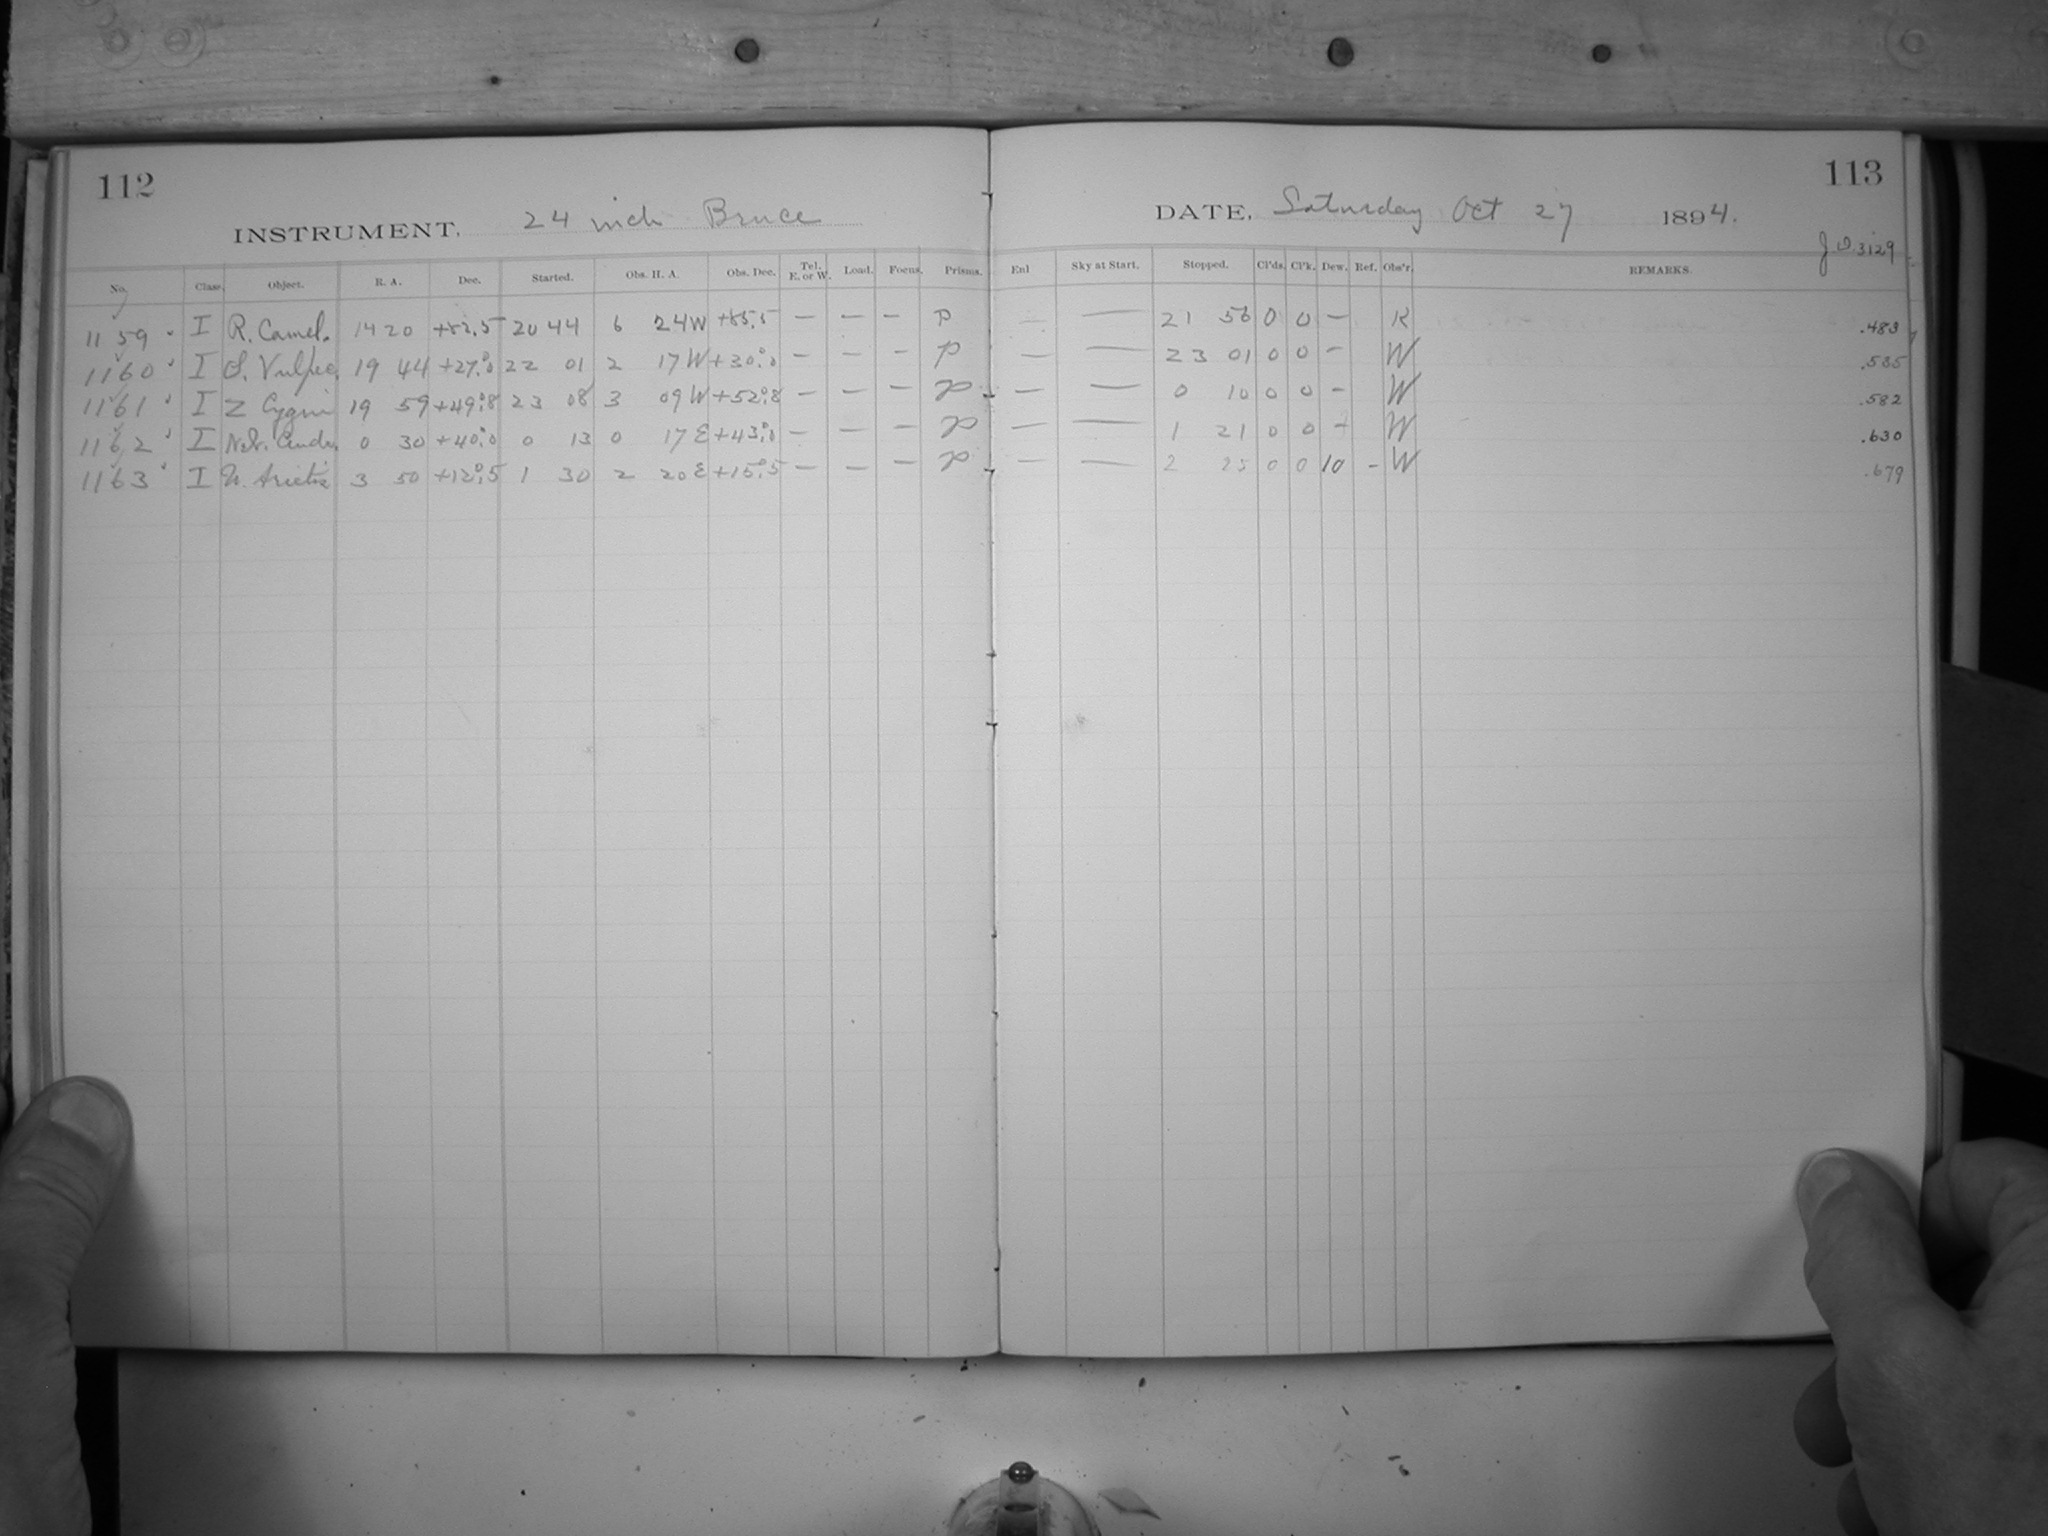 112
113
INSTRUMENT. 24 inch Bruce
DATE, Saturday Oct 27 1894.
J.D. 3129
No. Class. Object. R. A. Dec. Started. Obs. H. A. Obs. Dec. Tel. E. or W. Load. Focus. Prisms. Enl Sky at Start. Stopped. Cl'ds. Cl'k. Dew. Ref. Obs'r. REMARKS.
1159 I R. Camel. 14 20 +82.5 20 44 6 24 W +85.5 — — — P — — 21 56 0 0 — K .483
1160 I S. Vulpec. 19 44 +27°.0 22 01 2 17 W +30°.0 — — — P — — 23 01 0 0 — W .535
1161 I Z Cygni 19 59 +49°.8 23 08 3 09 W +52°.8 — — — P — — 0 10 0 0 — W .582
1162 I Neb. Andr. 0 30 +40°.0 0 13 0 17 E +43°.0 — — — P — — 1 21 0 0 — W .630
1163 I U. Arietis 3 50 +12°.5 1 30 2 20 E +15°.5 — — — P — — 2 25 0 0 10 - W .679